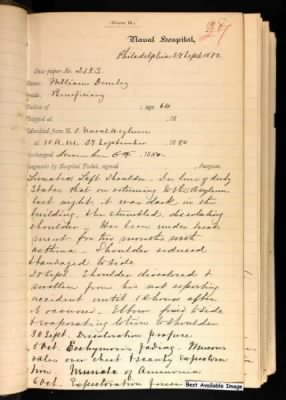 (FORM 18.)
Naval Hospital,
Philadelphia 27 Sept 1880.
Case paper No. 2183
Name: William
Grade: Beneficiary
Native of ; age 64
Shipped at , 18
Admitted from U. S. Naval Asylum
at 10 A.M. 27 September 1880
Discharged
Diagnosis by Hospital Ticket, signed , Surgeon.
Left Shoulder. In line of duty
States that on returning to the Asylum
last night, it was dark in the
building. He stumbled, dislocating
shoulder. Has been under treat
ment for two months with
asthma. Shoulder reduced
& bandaged to side
28 Sept. Shoulder discolored &
swollen from his not reporting
accident until 10 hours after
it occurred. Elbow fixed to side
& evaporating lotion to shoulder
30 Sept. Discoloration profuse
5 Oct. Ecchymosis fading. Mucous
rales over chest & scanty expectora
tion. Muriate of Ammonia
6 Oct. Expectoration
Best Available Image